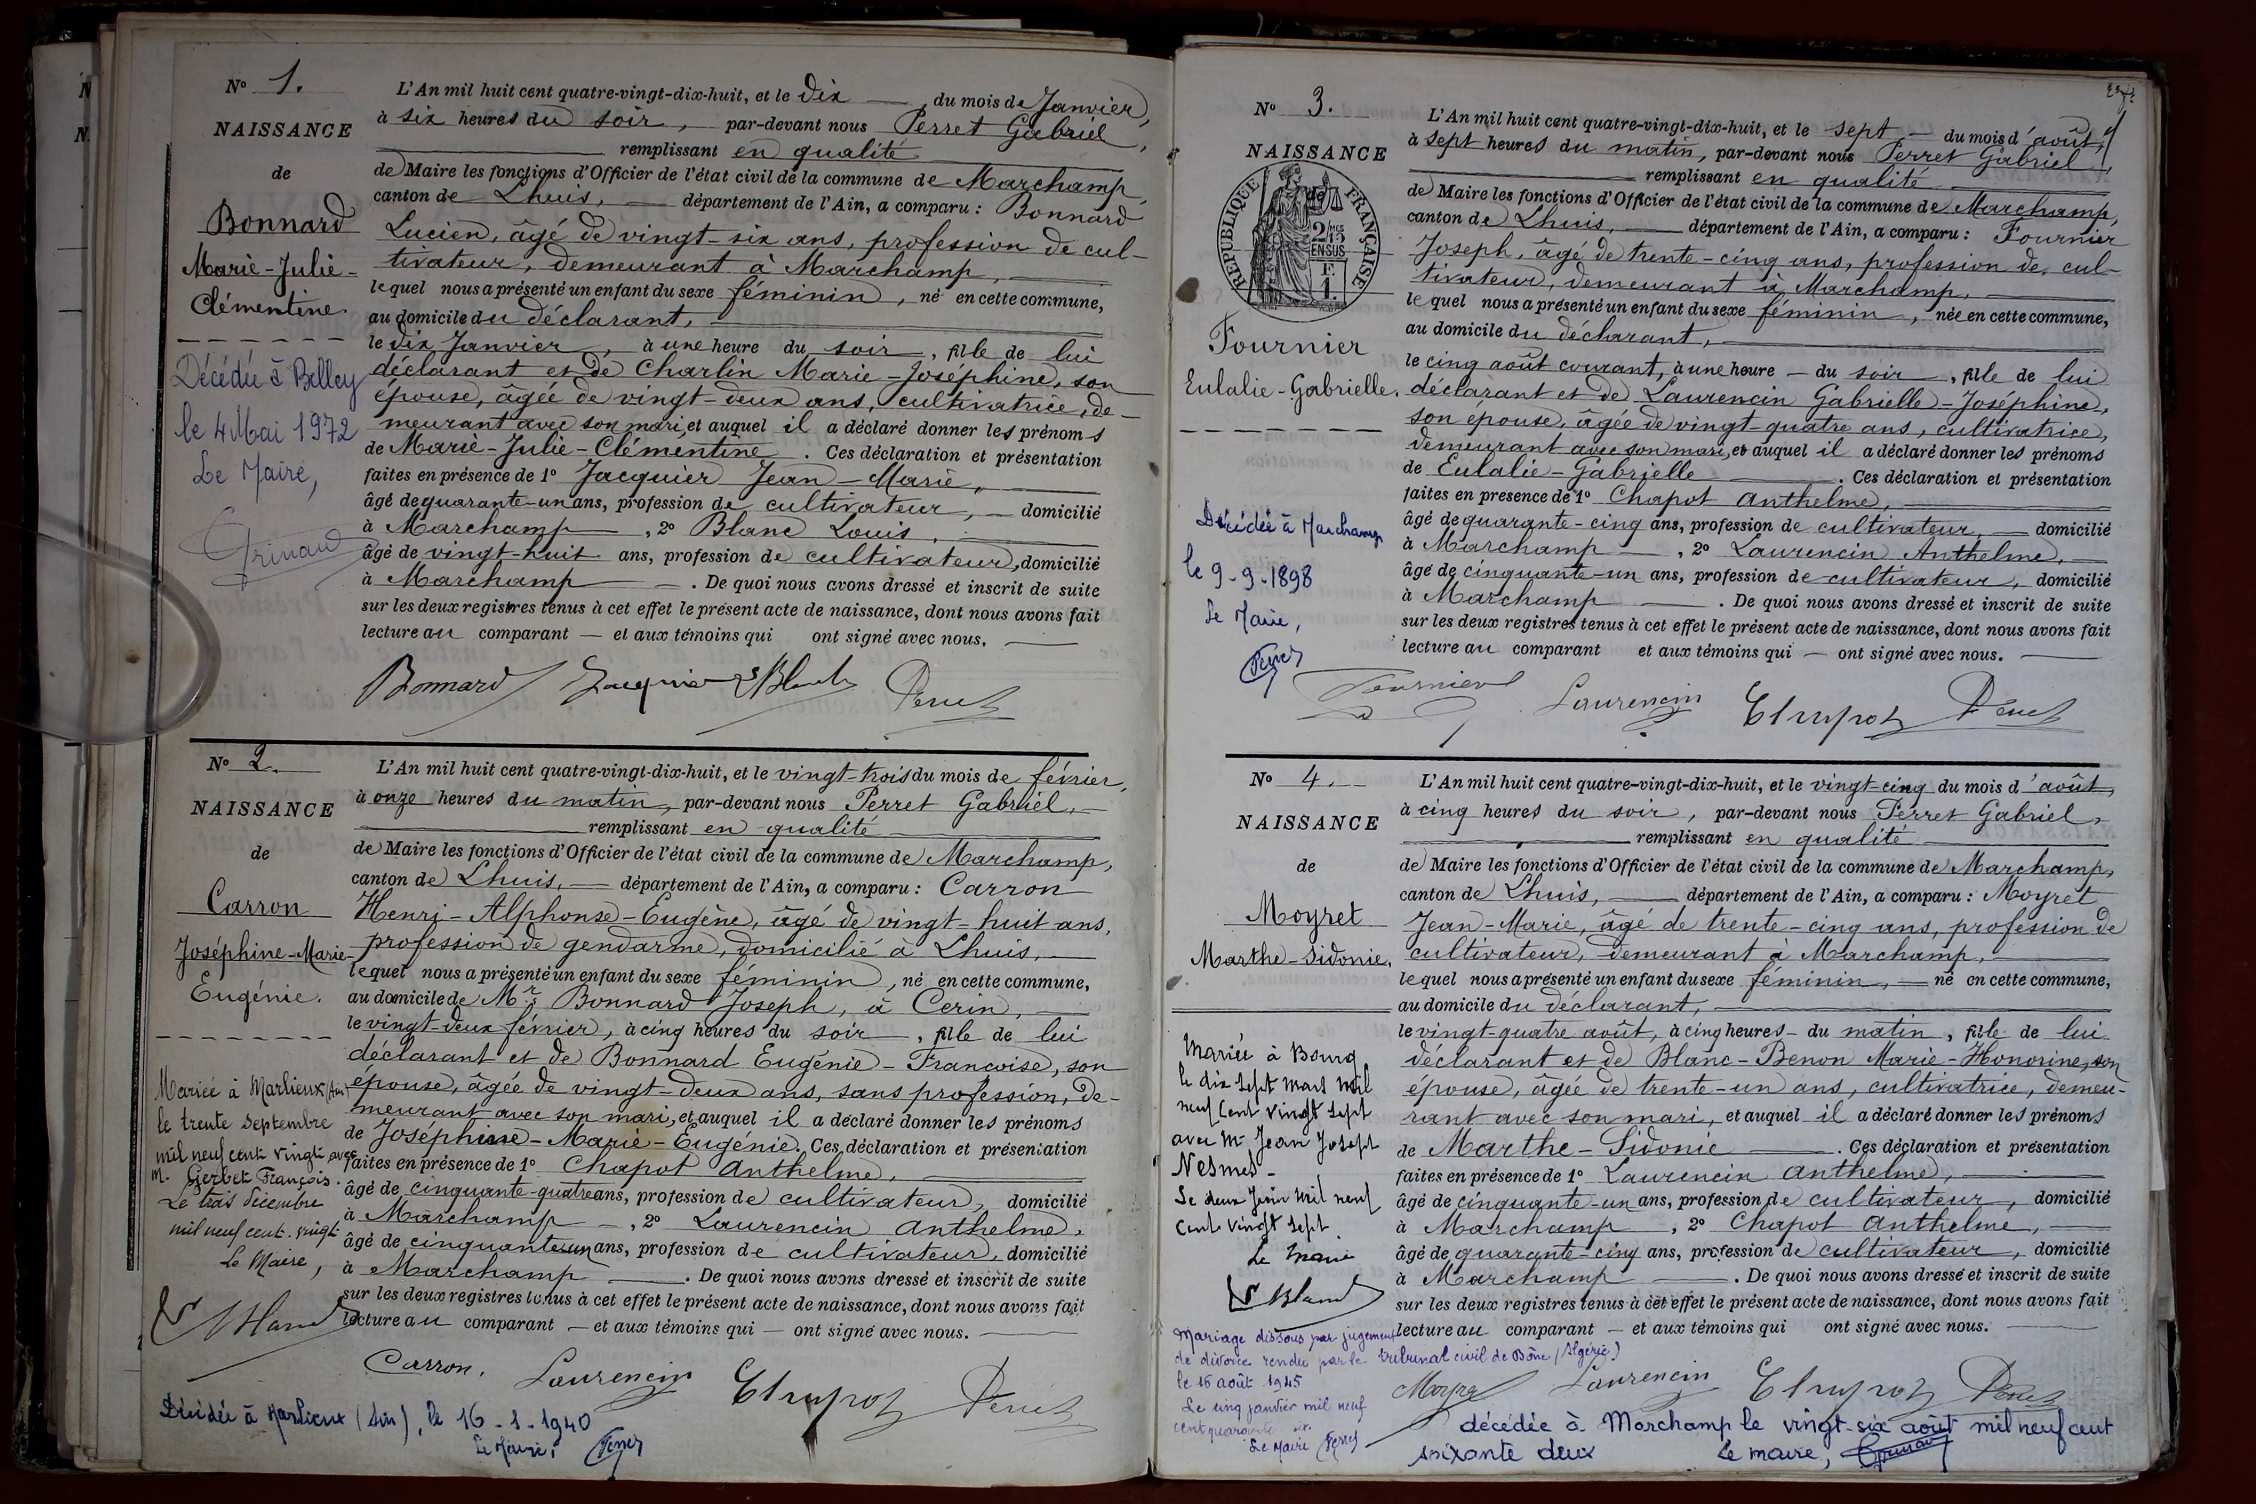 N° 1.
NAISSANCE
de
Bonnard
Marie-Julie-
Clémentine.
Décédée à Belley
le 4 Mai 1972
Le Maire,
L'An mil huit cent quatre-vingt-dix-huit, et le dix — du mois de Janvier,
à six heures du soir, — par-devant nous Perret Gabriel,
remplissant en qualité
de Maire les fonctions d'Officier de l'état civil de la commune de Marchamp,
canton de Lhuis, — département de l'Ain, a comparu : Bonnard
Lucien, âgé de vingt-six ans, profession de cul-
tivateur, demeurant à Marchamp,
lequel nous a présenté un enfant du sexe féminin, né en cette commune,
au domicile du déclarant,
le dix Janvier, à une heure du soir, fille de lui
déclarant et de Charlin Marie-Joséphine, son
épouse, âgée de vingt-deux ans, cultivatrice, de-
meurant avec son mari, et auquel il a déclaré donner les prénoms
de Marie-Julie-Clémentine. Ces déclaration et présentation
faites en présence de 1° Jacquier Jean-Marie,
âgé de quarante-un ans, profession de cultivateur, — domicilié
à Marchamp —, 2° Blanc Louis,
âgé de vingt-huit ans, profession de cultivateur, domicilié
à Marchamp —. De quoi nous avons dressé et inscrit de suite
sur les deux registres tenus à cet effet le présent acte de naissance, dont nous avons fait
lecture au comparant — et aux témoins qui ont signé avec nous.
Bonnard Jacquier Blanc Perret
N° 2.
NAISSANCE
de
Carron
Joséphine-Marie-
Eugénie.
Mariée à Marlieux (Ain)
le trente septembre
mil neuf cent vingt avec
M. Gerbet François.
Le trois décembre
mil neuf cent vingt
Le Maire,
L Blanc
L'An mil huit cent quatre-vingt-dix-huit, et le vingt-trois du mois de février,
à onze heures du matin, par-devant nous Perret Gabriel,
remplissant en qualité
de Maire les fonctions d'Officier de l'état civil de la commune de Marchamp,
canton de Lhuis, — département de l'Ain, a comparu : Carron
Henri-Alphonse-Eugène, âgé de vingt-huit ans,
profession de gendarme, domicilié à Lhuis,
lequel nous a présenté un enfant du sexe féminin, né en cette commune,
au domicile de Mr Bonnard Joseph, à Cerin,
le vingt-deux février, à cinq heures du soir, fille de lui
déclarant et de Bonnard Eugénie-Francoise, son
épouse, âgée de vingt-deux ans, sans profession, de-
meurant avec son mari, et auquel il a déclaré donner les prénoms
de Joséphine-Marie-Eugénie. Ces déclaration et présentation
faites en présence de 1° Chapot Anthelme,
âgé de cinquante-quatre ans, profession de cultivateur, domicilié
à Marchamp —, 2° Laurencin Anthelme,
âgé de cinquante-un ans, profession de cultivateur, domicilié
à Marchamp —. De quoi nous avons dressé et inscrit de suite
sur les deux registres tenus à cet effet le présent acte de naissance, dont nous avons fait
lecture au comparant — et aux témoins qui — ont signé avec nous.
Carron. Laurencin Chapot Perret
Décédée à Marlieux (Ain), le 16-1-1940
Le Maire,
N° 3.
NAISSANCE
de
RÉPUBLIQUE FRANÇAISE
2/10MES
EN SUS
F.
1.
Fournier
Eulalie-Gabrielle.
Décédée à Marchamp
le 9-9-1898
Le Maire,
L'An mil huit cent quatre-vingt-dix-huit, et le sept — du mois d'août,
à sept heures du matin, par-devant nous Perret Gabriel,
remplissant en qualité
de Maire les fonctions d'Officier de l'état civil de la commune de Marchamp,
canton de Lhuis, — département de l'Ain, a comparu : Fournier
Joseph, âgé de trente-cinq ans, profession de cul-
tivateur, demeurant à Marchamp,
lequel nous a présenté un enfant du sexe féminin, née en cette commune,
au domicile du déclarant,
le cinq août courant, à une heure — du soir, fille de lui
déclarant et de Laurencin Gabrielle-Joséphine,
son épouse, âgée de vingt-quatre ans, cultivatrice,
demeurant avec son mari, et auquel il a déclaré donner les prénoms
de Eulalie-Gabrielle —. Ces déclaration et présentation
faites en présence de 1° Chapot Anthelme,
âgé de quarante-cinq ans, profession de cultivateur, — domicilié
à Marchamp —, 2° Laurencin Anthelme,
âgé de cinquante-un ans, profession de cultivateur, domicilié
à Marchamp —. De quoi nous avons dressé et inscrit de suite
sur les deux registres tenus à cet effet le présent acte de naissance, dont nous avons fait
lecture au comparant et aux témoins qui — ont signé avec nous.
Fournier Laurencin Chapot Perret
N° 4.
NAISSANCE
de
Moyret
Marthe-Sidonie.
Mariée à Bourg
le dix sept mars mil
neuf cent vingt sept
avec Mr Jean Joseph
Nesmes-
Le deux Juin mil neuf
cent vingt sept
Le Maire
L Blanc
Mariage dissous par jugement
de divorce rendu par le tribunal civil de Bône (Algérie)
le 16 août 1945
Le cinq janvier mil neuf
cent quarante six
Le Maire
L'An mil huit cent quatre-vingt-dix-huit, et le vingt-cinq du mois d'août,
à cinq heures du soir, par-devant nous Perret Gabriel,
remplissant en qualité
de Maire les fonctions d'Officier de l'état civil de la commune de Marchamp,
canton de Lhuis, — département de l'Ain, a comparu : Moyret
Jean-Marie, âgé de trente-cinq ans, profession de
cultivateur, demeurant à Marchamp,
lequel nous a présenté un enfant du sexe féminin, — né en cette commune,
au domicile du déclarant,
le vingt-quatre août, à cinq heures — du matin, fille de lui
déclarant et de Blanc-Benon Marie-Honorine, son
épouse, âgée de trente-un ans, cultivatrice, demeu-
rant avec son mari, et auquel il a déclaré donner les prénoms
de Marthe-Sidonie —. Ces déclaration et présentation
faites en présence de 1° Laurencin Anthelme,
âgé de cinquante-un ans, profession de cultivateur, domicilié
à Marchamp, 2° Chapot Anthelme,
âgé de quarante-cinq ans, profession de cultivateur, domicilié
à Marchamp —. De quoi nous avons dressé et inscrit de suite
sur les deux registres tenus à cet effet le présent acte de naissance, dont nous avons fait
lecture au comparant — et aux témoins qui ont signé avec nous.
Moyret Laurencin Chapot Perret
décédée à Marchamp le vingt-six août mil neuf cent
soixante deux Le maire,